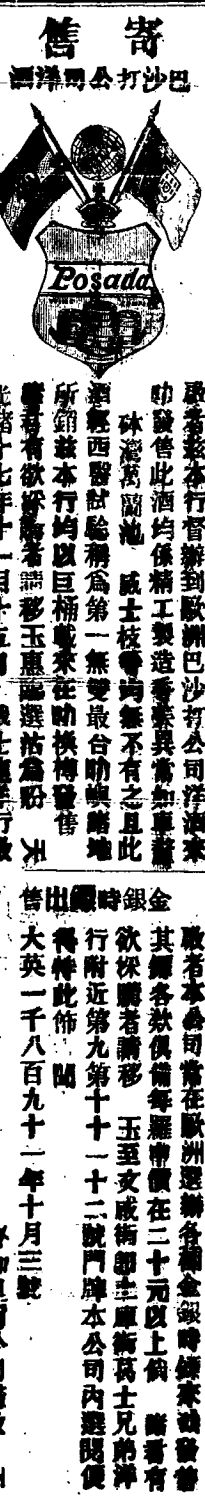 寄售
巴沙打公司洋酒
Posada
啟者茲本行督辦到歐洲巴沙打公司洋酒來
叻發售此酒均係精工製造香味異常如
砵 灞萬蘭池 威士枝 均無不有之且此
酒經西醫試驗稱為第一無雙最合叻嶼諸地
所銷茲本行均以巨桶載來在叻換樽發售
有欲採購者請移玉惠臨選沽為盼 天
光緒十七年十一月十五日
金銀時鏢出售
啟者本公司常在歐洲選辦各種金銀時鏢來叻發售
其鏢各款俱備每羅申價在二十元以上倘 諸君有
欲採購者請移 玉至文咸街即土庫街葛士兄弟洋
行附近第九第十十一十二號門牌本公司內選閱便
得特此佈 聞
大英一千八百九十一年十月三號